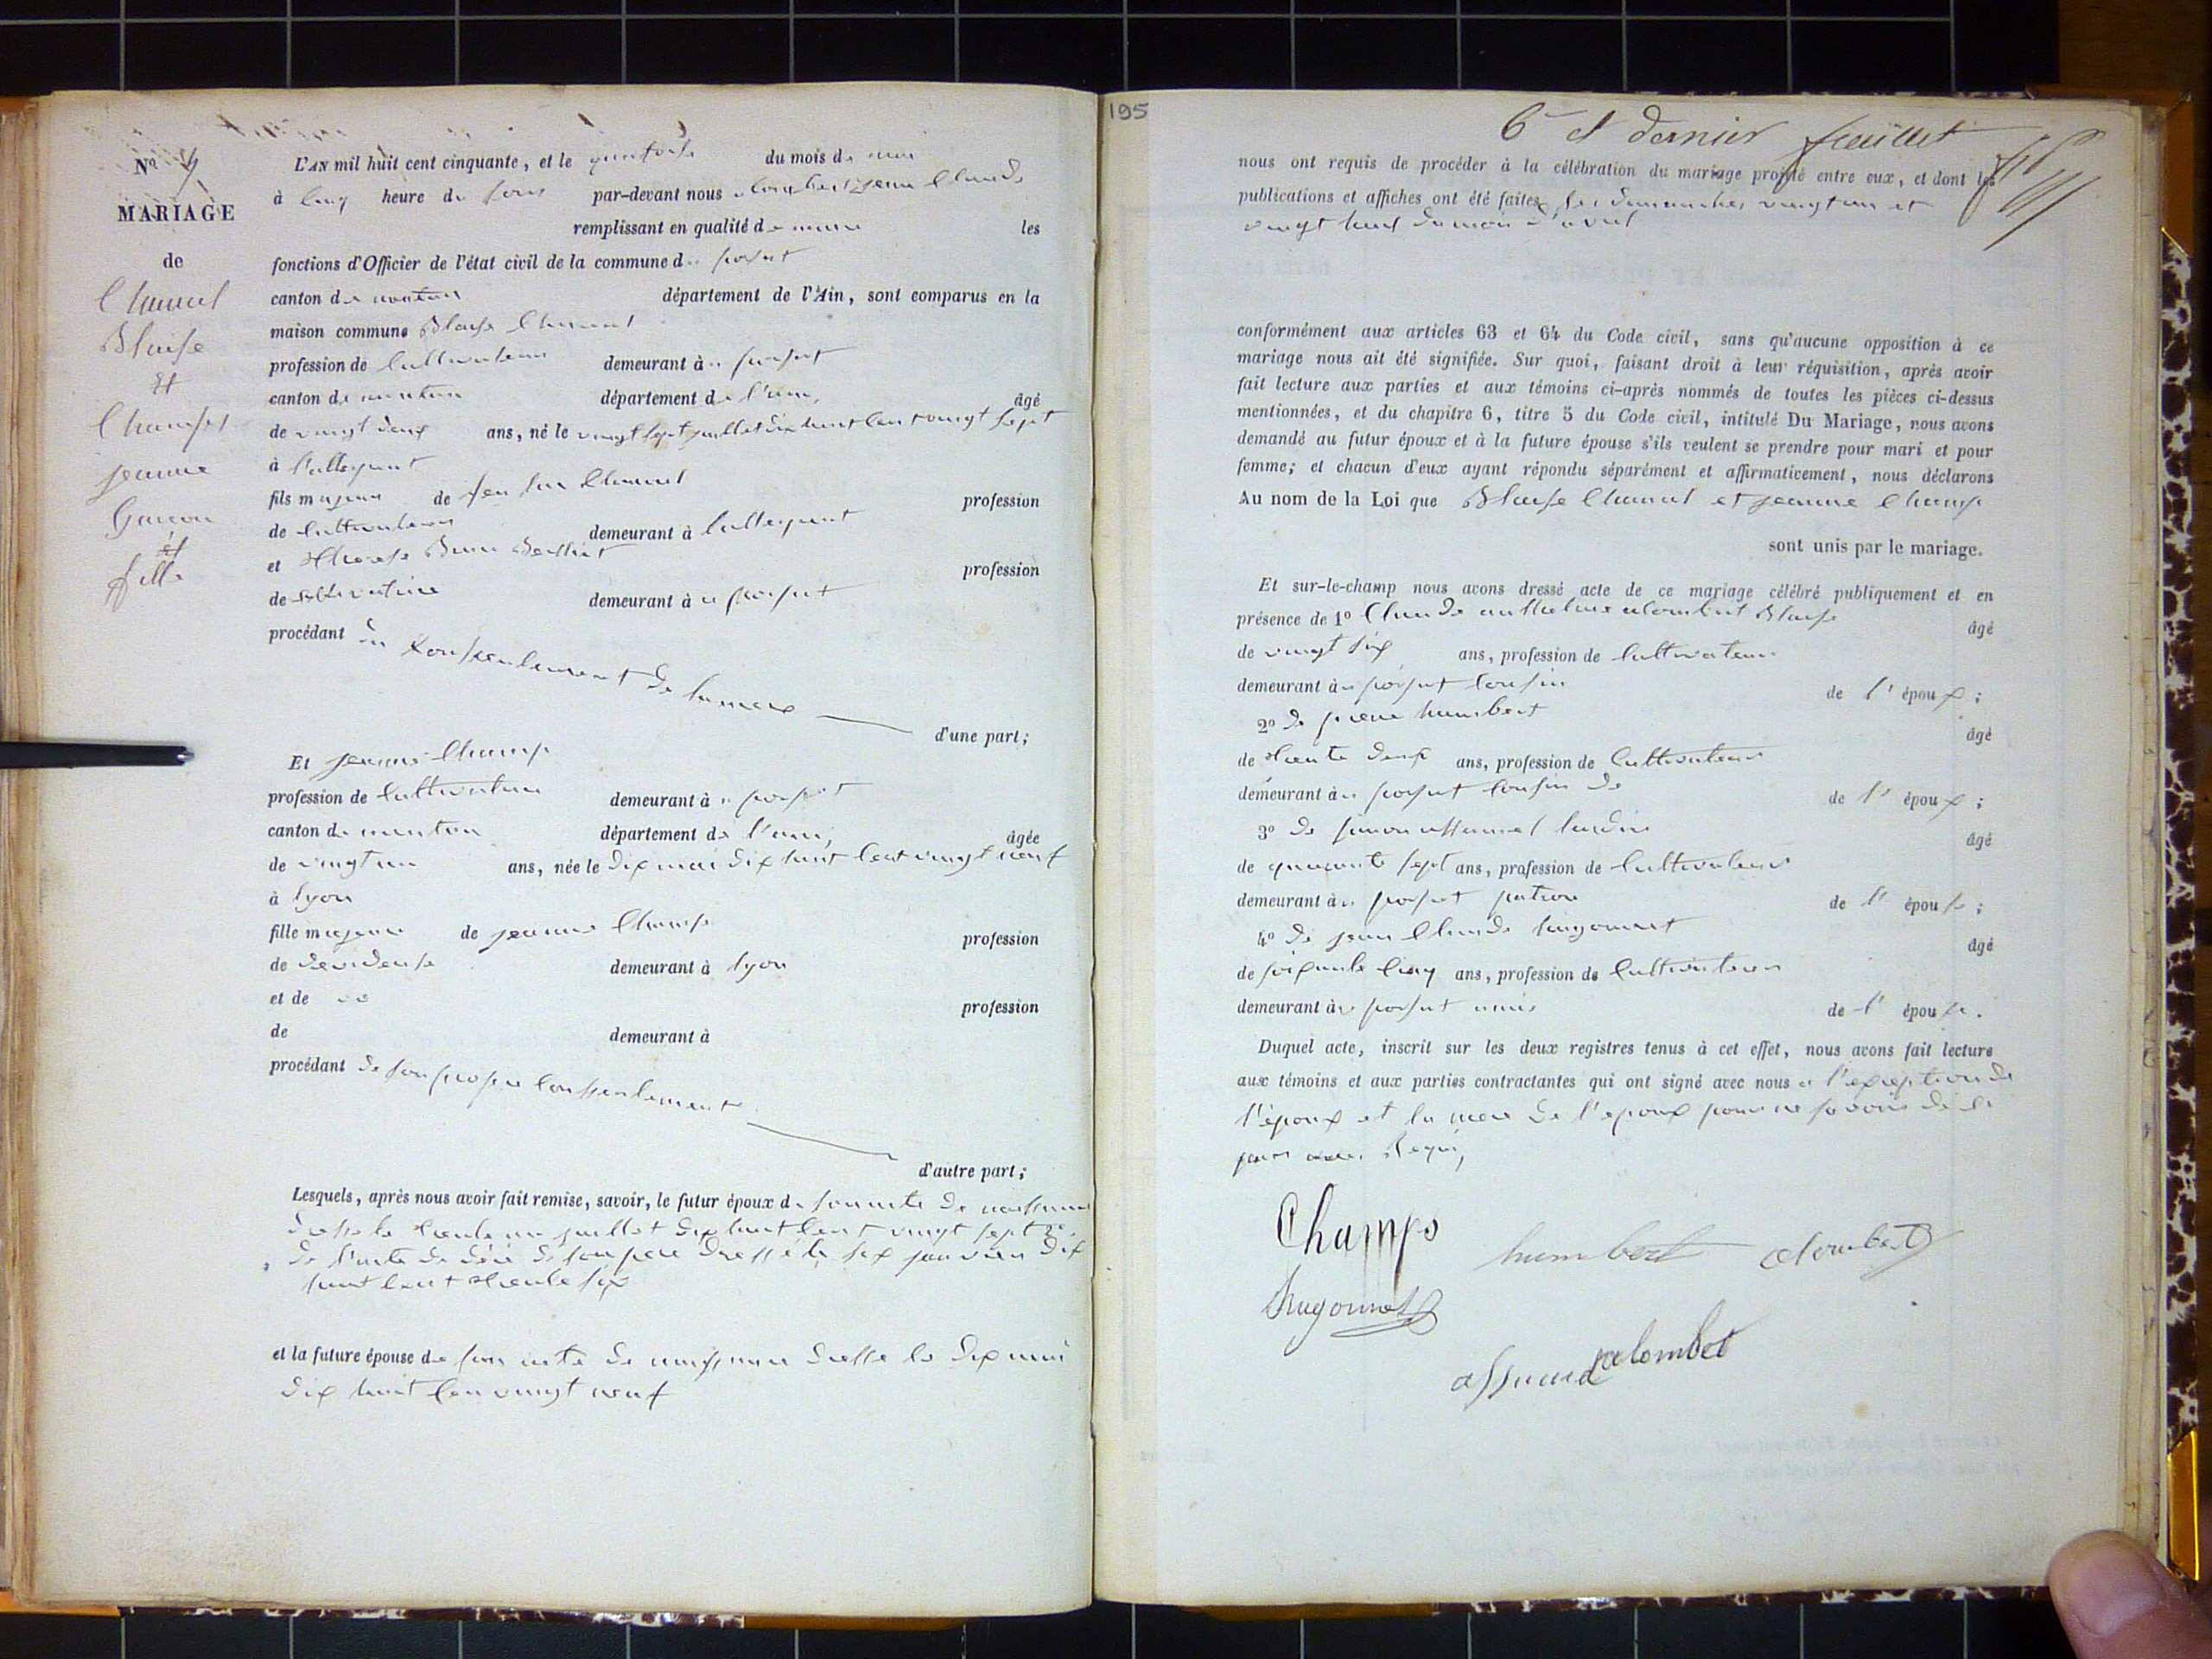 Nº 4
MARIAGE
de
Chanut
Blaise
Et
Champs
jeanne
Garcon
et
fille
L'AN mil huit cent cinquante, et le quatorse du mois de mai
à cinq heure du soir par-devant nous jean Claude
remplissant en qualité de maire les
fonctions d'Officier de l'état civil de la commune de
canton de département de l'Ain, sont comparus en la
maison commune Blaise Chanut
profession de Cultivateur demeurant à
canton de département de l'ain, âgé
de vingt deux ans, né le vingt sept juillet dix huit cent vingt sept
à
fils majeur de feu Chanut profession
de cultivateur demeurant à
et profession
de cultivatrice demeurant à
procédant du consentement de sa mere
d'une part;
Et jeanne Champ
profession de Cultivatrice demeurant à
canton de département de l'ain, âgée
de vingt un ans, née le dix mai dix huit cent vingt neuf
à lyon
fille majeure de jeanne Champ profession
de devideuse demeurant à lyon
et de profession
de demeurant à
procédant de son propre consentement
d'autre part;
Lesquels, après nous avoir fait remise, savoir, le futur époux de son acte de naissance
dresse le trente un juillet dix huit cent vingt sept
de l'acte de décé de son pere dressé le six janvier dix
huit cent trente six
et la future épouse de son acte de naissance dresse le dix mai
dix huit cen vingt neuf
195
6e et dernier feuillet
nous ont requis de procéder à la célébration du mariage projeté entre eux, et dont les
publications et affiches ont été faites les dimanches vingt un et
vingt huit du mois d'avril
conformément aux articles 63 et 64 du Code civil, sans qu'aucune opposition à ce
mariage nous ait été signifiée. Sur quoi, faisant droit à leur réquisition, après avoir
fait lecture aux parties et aux témoins ci-après nommés de toutes les pièces ci-dessus
mentionnées, et du chapitre 6, titre 5 du Code civil, intitulé Du Mariage, nous avons
demandé au futur époux et à la future épouse s'ils veulent se prendre pour mari et pour
femme; et chacun d'eux ayant répondu séparément et affirmativement, nous déclarons
Au nom de la Loi que Blaise Chanut et jeanne Champ
sont unis par le mariage.
Et sur-le-champ nous avons dressé acte de ce mariage célébré publiquement et en
présence de 1º Claude anthelme Blaise âgé
de vingt six ans, profession de Cultivateur
demeurant à cousin de l'époux;
2º de piere humbert âgé
de trente deux ans, profession de Cultivateur
demeurant à cousin de de l'époux;
3º de âgé
de quarante sept ans, profession de Cultivateur
demeurant à patron de l'épouse;
4º de jean Claude hugonnet âgé
de soixante cinq ans, profession de Cultivateur
demeurant à amis de l'épouse.
Duquel acte, inscrit sur les deux registres tenus à cet effet, nous avons fait lecture
aux témoins et aux parties contractantes qui ont signé avec nous a l'exception de
l'époux et la mere de l'epoux pour ne savoir de ce
faire Requi,
Champs
humbert
hugonnet